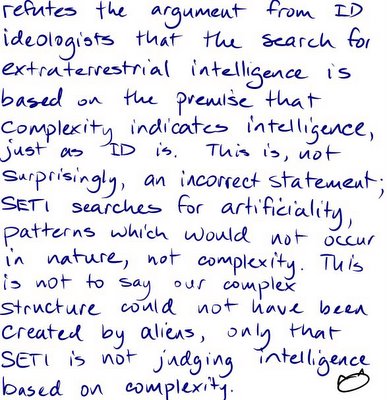 refutes the argument from ID
ideologists that the search for
extraterrestrial intelligence is
based on the premise that
complexity indicates intelligence,
just as ID is. This is, not
surprisingly, an incorrect statement;
SETI searches for artificiality,
patterns which would not occur
in nature, not complexity. This
is not to say our complex
structure could not have been
created by aliens, only that
SETI is not judging intelligence
based on complexity.